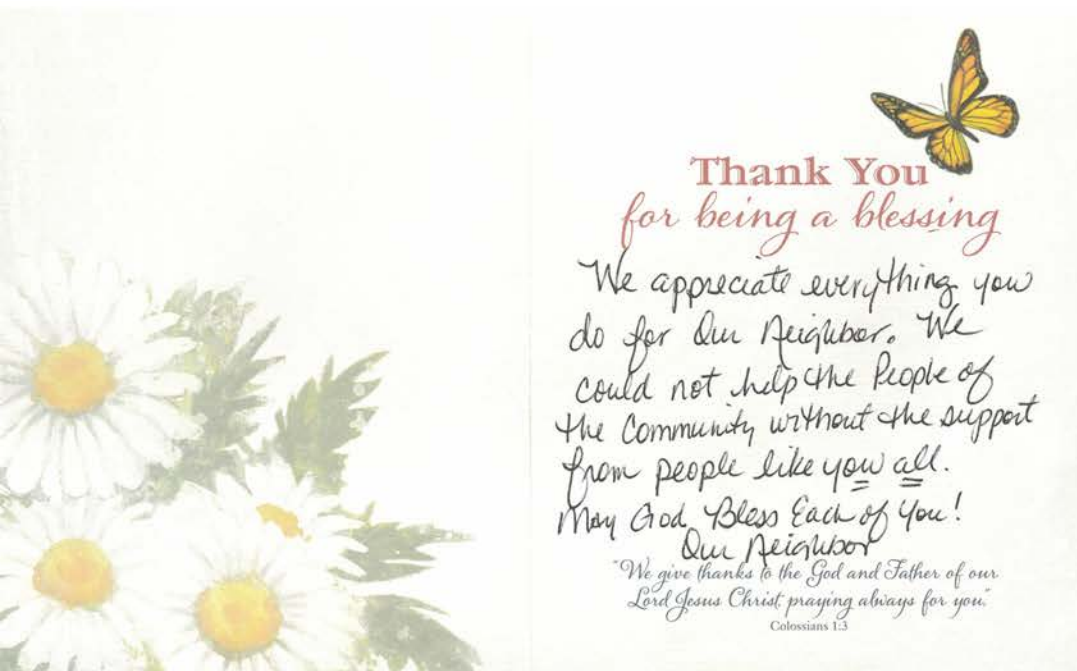 Thank You
for being a blessing
We appreciate everything you
do for Our Neighbor. We
could not help the People of
the Community without the support
from people like you all.
May God Bless Each of You!
Our Neighbor
"We give thanks to the God and Father of our
Lord Jesus Christ, praying always for you."
Colossians 1:3